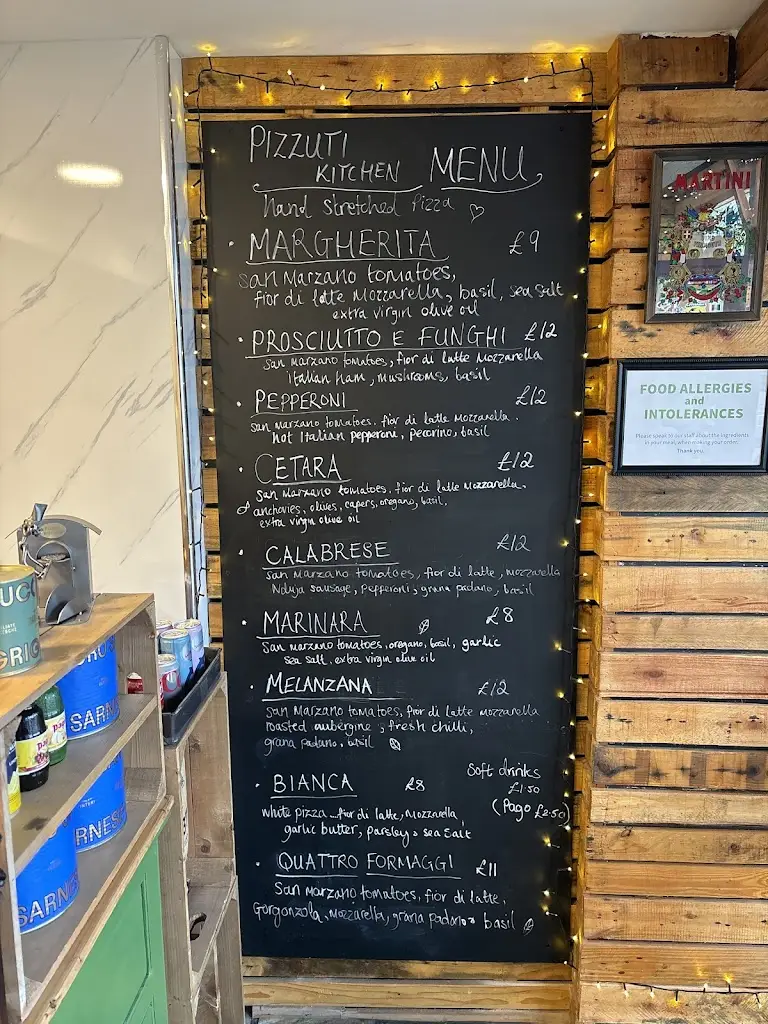 PIZZUTI
KITCHEN MENU
hand stretched Pizza
MARGHERITA £9
San Marzano tomatoes,
fior di latte Mozzarella, basil, sea salt
extra virgin olive oil
PROSCIUTTO E FUNGHI £12
San Marzano tomatoes, fior di latte Mozzarella
Italian Ham, mushrooms, basil
PEPPERONI £12
San Marzano tomatoes, fior di latte Mozzarella.
hot Italian pepperoni, pecorino, basil
CETARA £12
San Marzano tomatoes, fior di latte Mozzarella.
anchovies, olives, capers, oregano, basil,
extra virgin olive oil
CALABRESE £12
San Marzano tomatoes, fior di latte, mozzarella
Nduja sausage, Pepperoni, grana padano, basil
MARINARA £8
San Marzano tomatoes, oregano, basil, garlic
sea salt, extra virgin olive oil
MELANZANA £12
San Marzano tomatoes, fior di latte mozzarella
roasted aubergine, fresh chilli,
grana padano, basil
Soft drinks
£1.50
(Pago £2.50)
BIANCA £8
white pizza ....fior di latte, Mozzarella,
garlic butter, parsley, sea salt
QUATTRO FORMAGGI £11
San Marzano tomatoes, fior di latte,
Gorgonzola, Mozzarella, grana padano, basil
MARTINI
FOOD ALLERGIES
and
INTOLERANCES
Please speak to our staff about the ingredients
in your meal, when making your order.
Thank you.
SARN
RNES
SARN